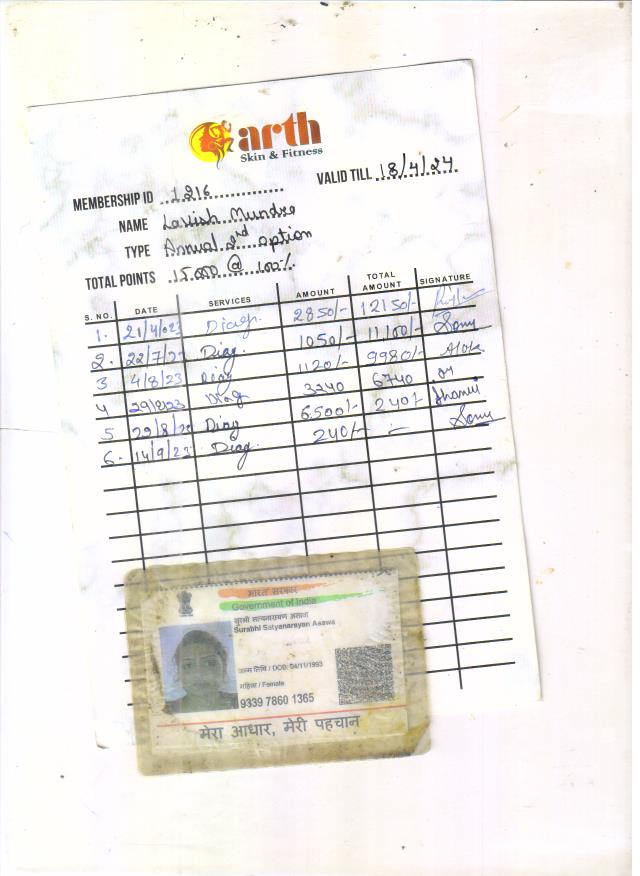 arth
Skin & Fitness
MEMBERSHIP ID 1216
VALID TILL 18/4/24
NAME Lavish Mundra
TYPE Annual 2nd option
TOTAL POINTS 15000 @ 100%
S. NO. DATE SERVICES AMOUNT TOTAL AMOUNT SIGNATURE
1. 21/4/23 Diag. 2850/- 12150/-
2. 22/7/23 Diag. 1050/- 11,100/- Sonu
3 4/8/23 Diag 1120/- 9980/- Alok
4 29/8/23 Diag 3240 6740
5 29/8/23 Diag 6500/- 240/-
6. 14/9/23 Diag. 240/- - Sonu
भारत सरकार
Government of India
सुरभी सत्यनारायण असावा
Surabhi Satyanarayan Asawa
जन्म तिथि / DOB: 04/11/1993
महिला / Female
9339 7860 1365
मेरा आधार, मेरी पहचान